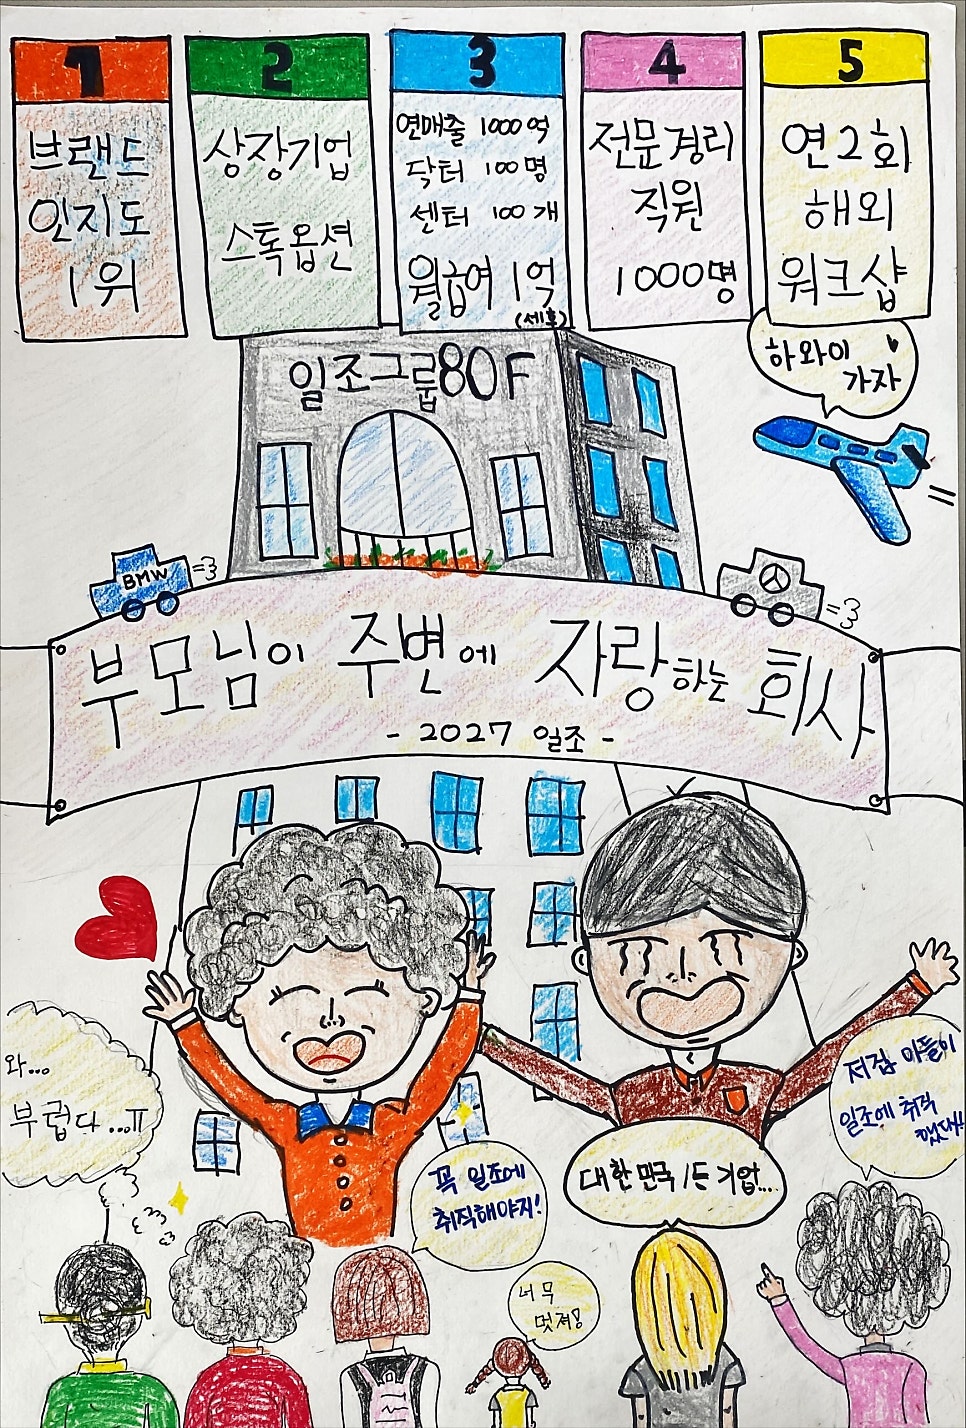 1
브랜드
인지도
1위
2
상장기업
스톡옵션
3
연매출 1000억
닥터 100명
센터 100개
월급여 1억
(세후)
4
전문경리
직원
1000명
5
연2회
해외
워크샵
일조그룹80F
하와이
가자
BMW
부모님이 주변에 자랑하는 회사
- 2027 일조 -
와...
부럽다...ㅠ
꼭 일조에
취직해야지!
대한민국 1등 기업...
저집 아들이
일조에 취직
했대!!
너무
멋져!